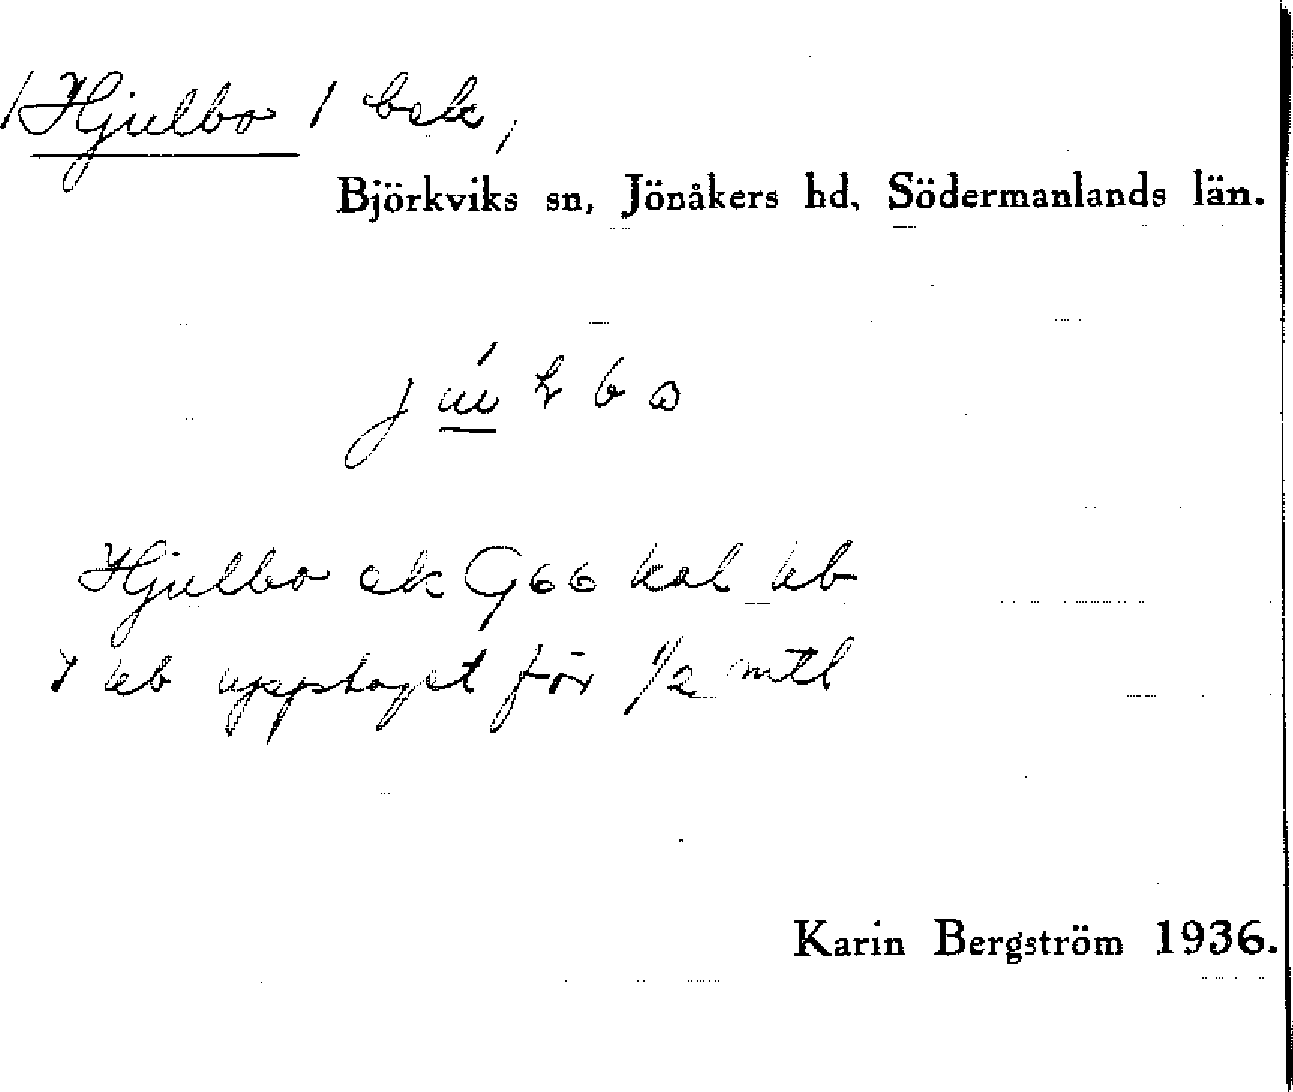 /Hjulbo / bek,
Björkviks sn, Jönåkers hd, Södermanlands län.
Hjulbo ek G66 kal
upptaget för 1/2 mtl
Karin Bergström 1936.